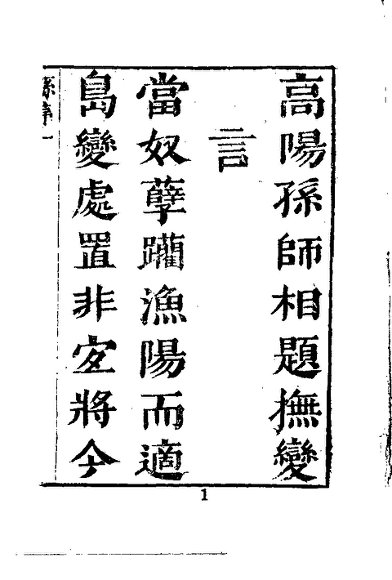 高陽孫師相題撫變
言
當奴孽躪漁陽而適
島變處置非宜將今
孫序一
1